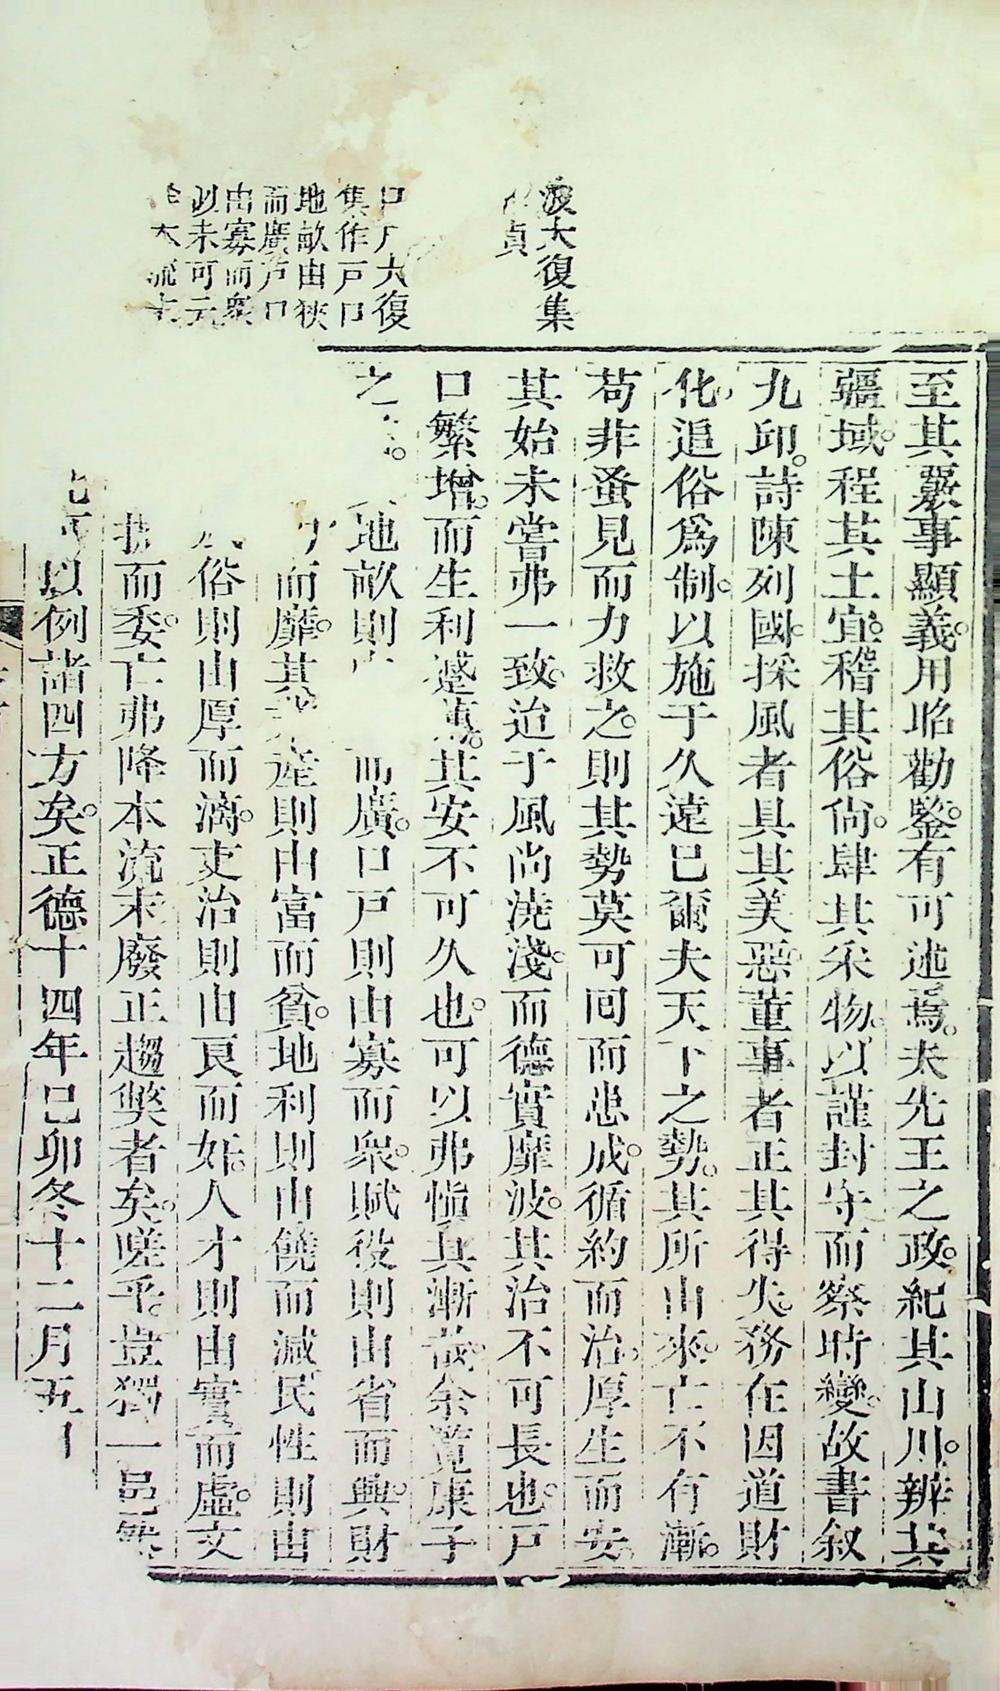 波大復集
貞
口戶大復
集作戶口
地畝由狹
而廣戶口
由寡而衆
以未可元
本流末
至其覈事顯義用昭勸鑒有可述焉夫先王之政紀其山川辨其
疆域程其土宜稽其俗尙肆其采物以謹封守而察時變故書叙
九邱詩陳列國採風者具其美惡董事者正其得失務在因道財
化追俗爲制以施于久遠已爾夫天下之勢其所由來亡不有漸
苟非蚤見而力救之則其勢莫可回而患成循約而治厚生而安
其始未嘗弗一致迨于風尚澆淺而德實靡波其治不可長也戶
口繁增而生利蹙其安不可久也可以弗愼其漸余覽康子
之地畝則而廣口戶則由寡而衆賦役則由省而興財
而靡其產則由富而貧地利則由饒而減民性則由
俗則由厚而漓吏治則由良而奸人才則由實而虛文
而委亡弗降本流末廢正趨獘者矣嗟乎豈獨一邑
以例諸四方矣正德十四年己卯冬十二月五